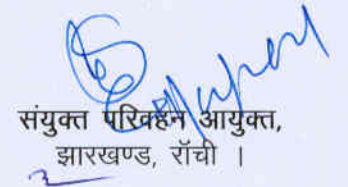 संयुक्त परिवहन आयुक्त,
झारखण्ड, राँची ।